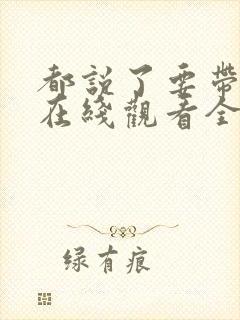 都説了要帶
在綫觀看全
绿有痕